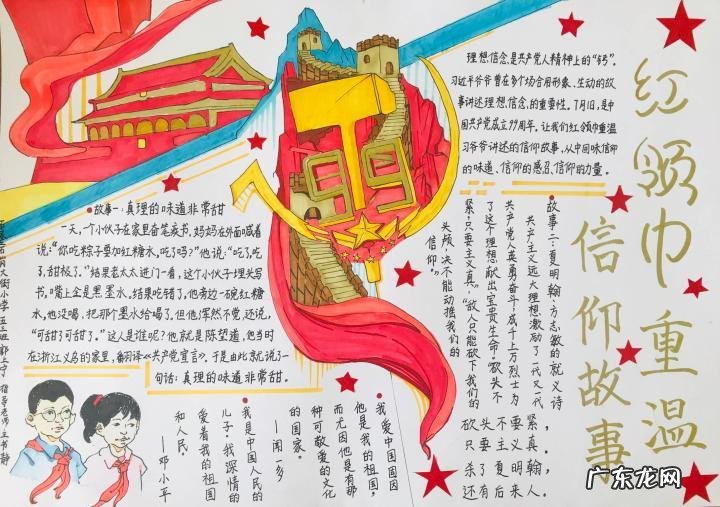 红领巾重温
信仰故事
理想信念是共产党人精神上的“钙”。
习近平爷爷曾在多个场合用形象、生动的故
事讲述理想、信念的重要性。7月1日,是中
国共产党成立99周年。让我们红领巾重温
习爷爷讲述的信仰故事,从中回味信仰
的味道、信仰的感召、信仰的力量。
99
故事一:真理的味道非常甜
一天,一个小伙子在家里奋笔疾书,妈妈在外面喊着
说:“你吃粽子要加红糖水,吃了吗?”他说:“吃了吃
了,甜极了。”结果老太太进门一看,这个小伙子埋头写
书,嘴上全是黑墨水。结果吃错了,他旁边一碗红糖
水,他没喝,把那个墨水给喝了。但他浑然不觉,还说,
“可甜了可甜了。”这人是谁呢?他就是陈望道,他当时
在浙江义乌的家里,翻译《共产党宣言》。于是由此就说了一
句话:真理的味道非常甜。
故事二:夏明翰、方志敏的就义诗
共产主义远大理想激励了一代又一代
共产党人英勇奋斗,成千上万烈士为
了这个理想献出宝贵生命。“砍头不
要紧,只要主义真。”“敌人只能砍下我们的
头颅,决不能动摇我们的
信仰”。
砍头不要紧,
只要主义真。
杀了夏明翰,
还有后来人。
我爱中国固因
他是我的祖国,
而尤因他是有那
种可敬爱的文化
的国家。
——闻一多
我是中国人民的
儿子,我深情的
爱着我的祖国
和人民。
——邓小平
大街小学 五三班
指导老师:王书静
广东龙网